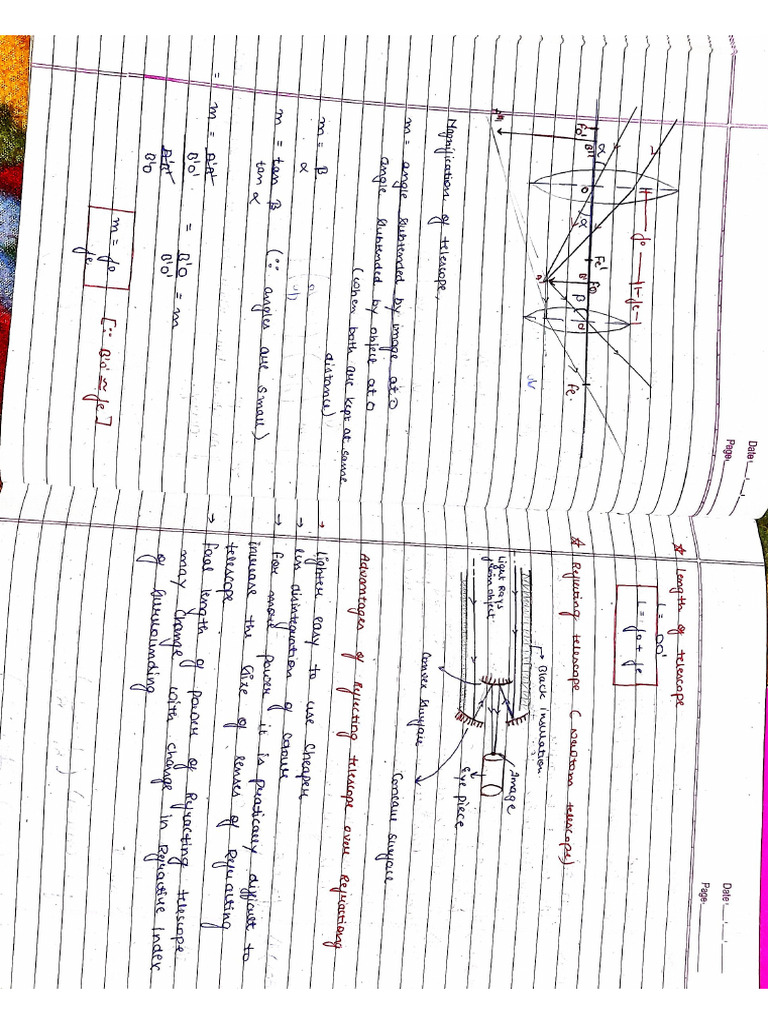 Date:
Page:
fo
fe
α
O
α
Fe'
B'
Fo
β
O'
Fe
Fo'
B"
A'
A"
Magnification of telescope,
m = angle subtended by image at O
angle subtended by object at O
(when both are kept at same
distance)
m = β
α
m = tan β (∵ angles are small)
tan α
= m = A'B'
B'O'
A'B'
B'O
= B'O = m
B'O'
m = fo
fe
[∵ B'O' ≃ fe]
Date:
Page:
☆ Length of telescope
L = OO'
L = fo + fe
☆ Reflecting telescope ( Newtom telescope)
Black insulation.
Light Rays
from object
Image
Eye piece
Convex Surface
Concave Surface
Advantages of Reflecting telescope over Refractiong
→ Lighter easy to use Cheaper
→ less disintegration of Colour
→ for more power it is pratically difficult to
increase the size of lenses of Refracting
telescope
→ focal length of power of Refracting telescope
may change with change in Refractive Index
of Surrounding